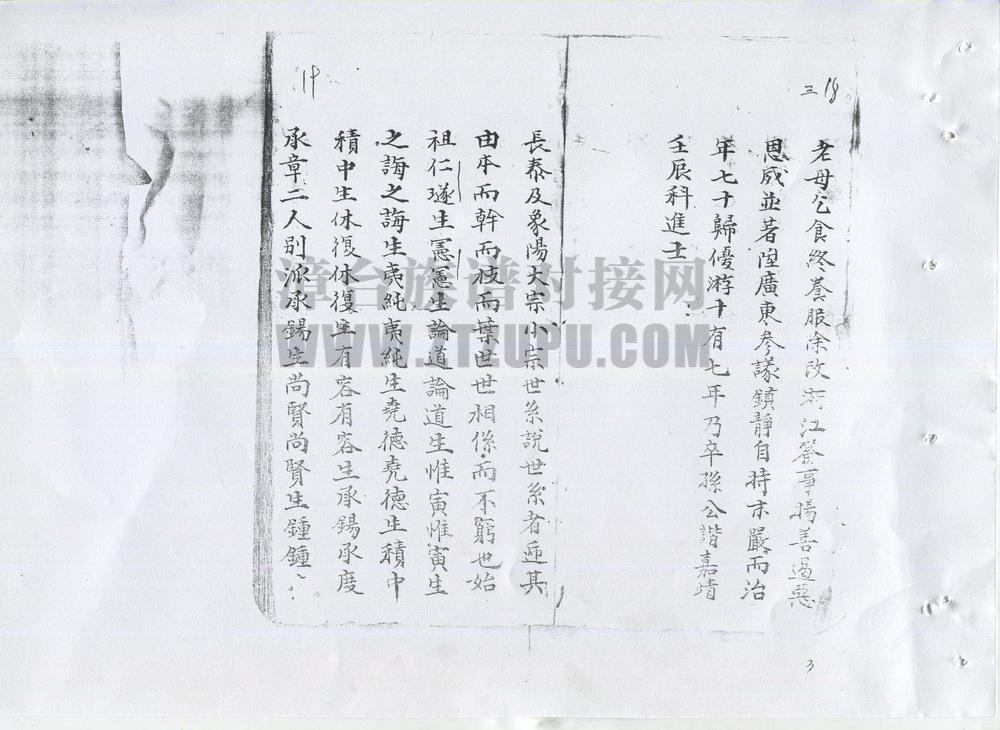 三 18
老母乞食終養服除改浙江僉事揚善遏惡
恩威並著陞廣東參議鎮靜自持未嚴而治
年七十歸優游十有七年乃卒孫公諧嘉靖
壬辰科進士
19
長泰及象陽大宗小宗世系說世系者逓其
由本而幹而枝而葉世世相係而不窮也始
祖仁璲生憲憲生論道論道生惟寅惟寅生
之誨之誨生夷純夷純生堯德堯德生積中
積中生休復休復生有容有容生承錫承度
承章二人別派承錫生尚賢尚賢生鍾鍾
3
漳台族谱对接网
WWW.ZTZUPU.COM